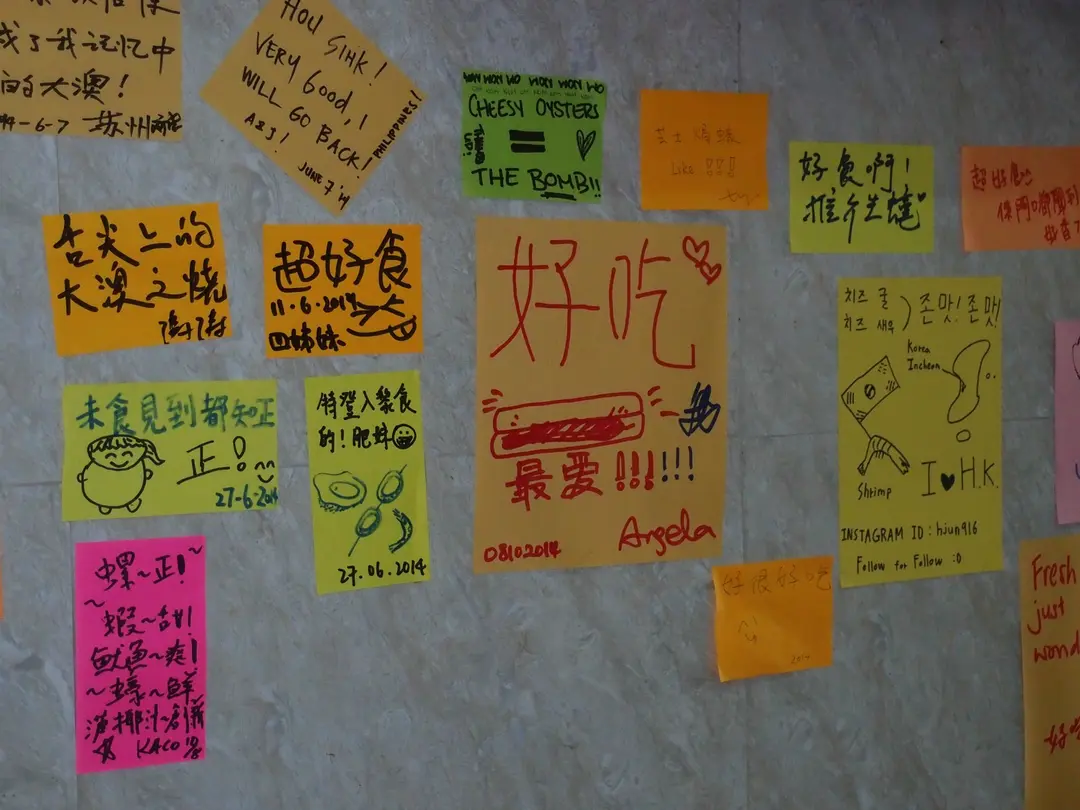 成了我记忆中
的大澳！
苏州
HOU SIHK!
VERY GOOD, I
WILL GO BACK!
PHILIPPINES!
JUNE 7 '14
CHEESY OYSTERS
=
THE BOMB!!
芝士
Like !!!
好食啊!
推介生蠔
超好食
舌尖上的
大澳之燒
超好食
11.6.2014
四姊妹
好吃
最愛!!!!!!
08102014
Angela
치즈 굴
치즈 새우
존맛! 존맛!
Korea
Incheon
Shrimp
I ♥ H.K.
INSTAGRAM ID : hjun916
Follow for Follow :D
未食見到都知正
正!
27-6-2014
特登入黎食
的! 肥妹
27.06.2014
螺~正!
~蝦~甜!
魷魚~爽!
~蠔~鮮
椰汁
KACO
好很好吃
2014
Fresh
just
好吃